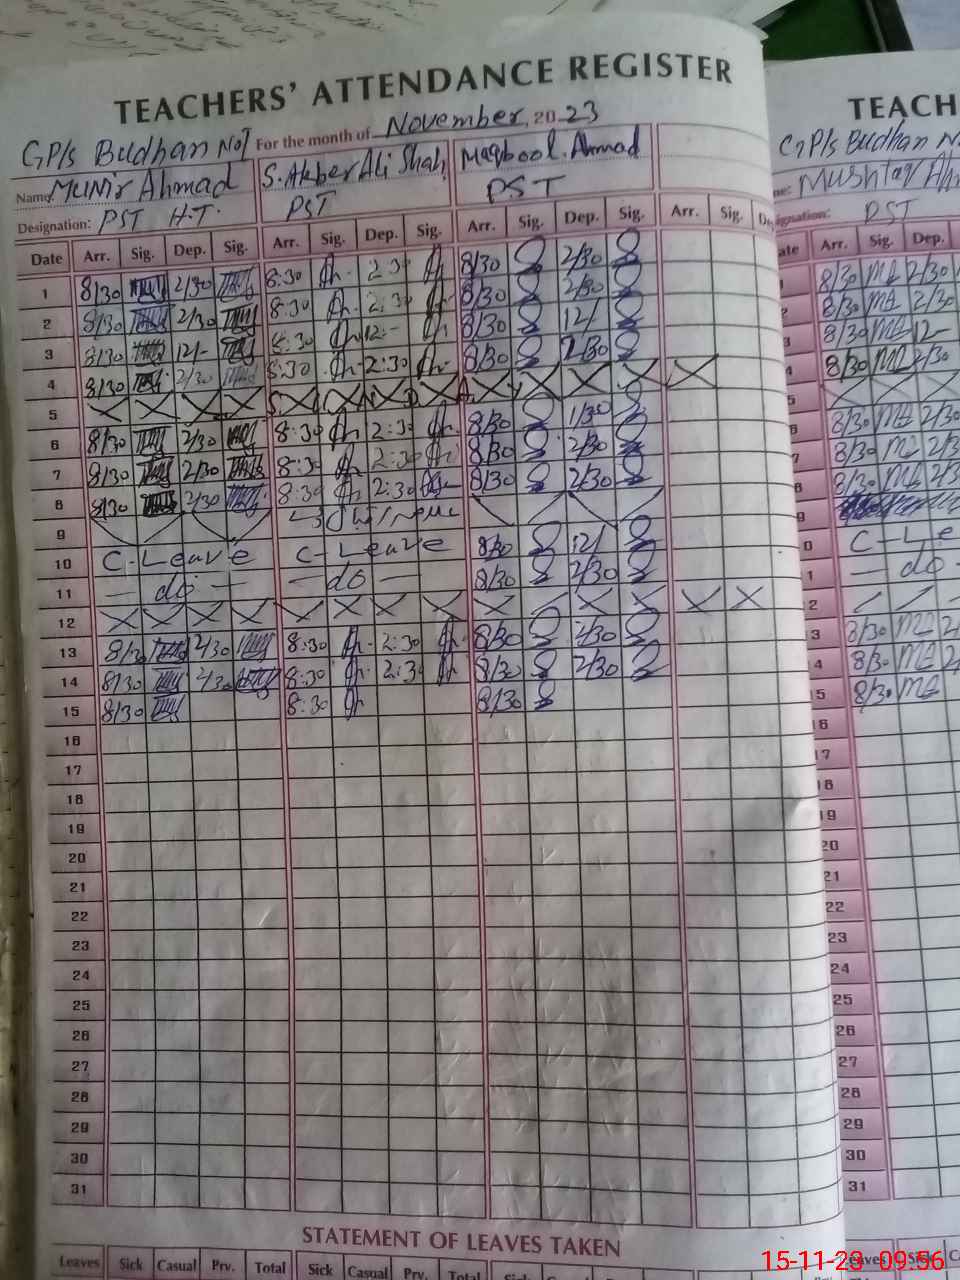 TEACHERS' ATTENDANCE REGISTER
GP/s Budhan No1 For the month of November, 2023
Name: Munir Ahmad S. Akber Ali Shah Maqbool Ahmad
Designation: PST H.T. PST PST
Date Arr. Sig. Dep. Sig. Arr. Sig. Dep. Sig. Arr. Sig. Dep. Sig. Arr. Sig.
1 8/30 2/30 8:30 2:30 8/30 2/30
2 8/30 2/30 8:30 2:30 8/30 2/30
3 8/30 12/- 8:30 12:- 8/30 12/
4 8/30 2/30 8:30 2:30 8/30 2/30
5
6 8/30 2/30 8:30 2:30 8/30 1/30
7 8/30 2/30 8:30 2:30 8/30 2/30
8 8/30 2/30 8:30 2:30 8/30 2/30
9
10 C-Leave C-Leave 8/30 12/
11 — do — — do — 8/30 2/30
12
13 8/30 2/30 8:30 2:30 8/30 2/30
14 8/30 2/30 8:30 2:30 8/30 2/30
15 8/30 8:30 8/30
16
17
18
19
20
21
22
23
24
25
26
27
28
29
30
31
STATEMENT OF LEAVES TAKEN
Leaves Sick Casual Prv. Total Sick Casual Prv. Total
TEACH
GP/s Budhan N
Mushtaq Ah
PST
Arr. Sig. Dep.
8/30 MA 2/30
8/30 MA 2/30
8/30 MA 12-
8/30 MA 2/30
8/30 MA 2/30
8/30 MA 2/3
8/30 MA 2/3
C-Le
— do -
8/30 MA 2
8/30 MA 2
8/30 MA
22
23
24
25
26
27
28
29
30
31
15-11-23 09:56